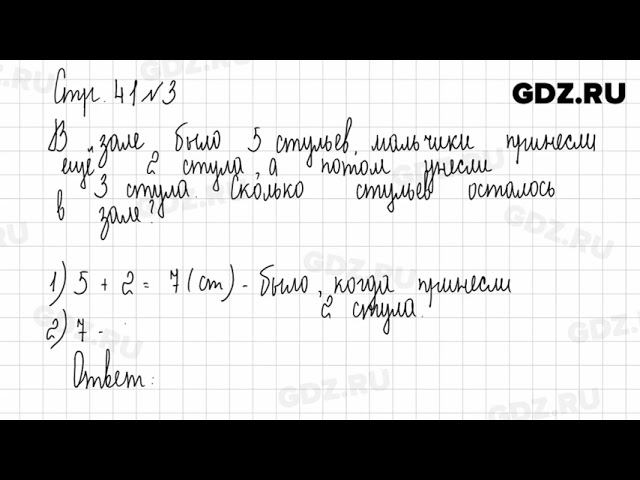 Стр. 41 №3
GDZ.RU
В зале было 5 стульев, мальчики принесли
ещё 2 стула, а потом унесли
3 стула. Сколько стульев осталось
в зале?
1) 5 + 2 = 7 (ст) - было, когда принесли
2 стула.
2) 7 -
Ответ: